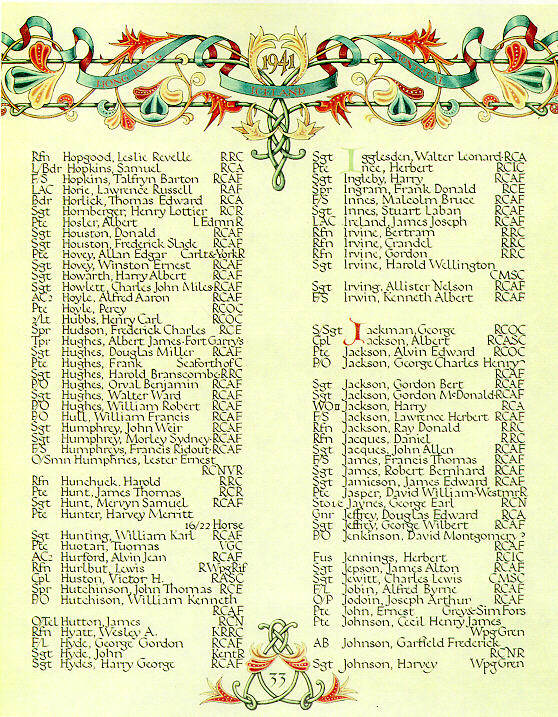 1941
HONG KONG
ICELAND
MONTREAL
Rfn Hopgood, Leslie Revelle RRC
L/Bdr Hopkins, Samuel RCA
F/S Hopkins, Talfryn Barton RCAF
LAC Horie, Lawrence Russell RAF
Bdr Horlick, Thomas Edward RCA
Sgt Hornberger, Henry Lottier RCR
Pte Hosler, Albert LEdmnR
Sgt Houston, Donald RCAF
Sgt Houston, Frederick Slade RCAF
Pte Hovey, Allan Edgar Carlt&YorkR
Sgt Hovey, Winston Ernest RCAF
Sgt Howarth, Harry Albert RCAF
Sgt Howlett, Charles John Miles RCAF
AC2 Hoyle, Alfred Aaron RCAF
Pte Hoyle, Percy RCOC
2/Lt Hubbs, Henry Carl RCOC
Spr Hudson, Frederick Charles RCE
Tpr Hughes, Albert James-Fort Garry's
Sgt Hughes, Douglas Miller RCAF
Pte Hughes, Frank SeaforthofC
Sgt Hughes, Harold Branscombe-RRC
P/O Hughes, Orval Benjamin RCAF
Sgt Hughes, Walter Ward RCAF
P/O Hughes, William Robert RCAF
P/O Hull, William Francis RCAF
Sgt Humphrey, John Weir RCAF
Sgt Humphrey, Morley Sydney-RCAF
F/S Humphreys, Francis Ridout-RCAF
O/Smn Humphries, Lester Ernest
RCNVR
Rfn Hunchuck, Harold RRC
Pte Hunt, James Thomas RCR
Sgt Hunt, Mervyn Samuel RCAF
Pte Hunter, Harvey Merritt
16/22 Horse
Sgt Hunting, William Karl RCAF
Pte Huotari, Tuomas VGC
AC2 Hurford, Alvin Jean RCAF
Rfn Hurlbut, Lewis RWpgRif
Cpl Huston, Victor H. RASC
Spr Hutchinson, John Thomas RCE
P/O Hutchison, William Kenneth
RCAF
OTel Hutton, James RCN
Rfn Hyatt, Wesley A. KRRC
F/L Hyde, George Gordon RCAF
Sgt Hyde, John KentR
Sgt Hydes, Harry George RCAF
Sgt Igglesden, Walter Leonard-RCA
Pte Ince, Herbert RCIC
Sgt Ingleby, Harry RCAF
Spr Ingram, Frank Donald RCE
F/S Innes, Malcolm Bruce RCAF
Sgt Innes, Stuart Laban RCAF
LAC Ireland, James Joseph RCAF
Rfn Irvine, Bertram RRC
Rfn Irvine, Crandel RRC
Rfn Irvine, Gordon RRC
Sgt Irvine, Harold Wellington
CMSC
Sgt Irving, Allister Nelson RCAF
F/S Irwin, Kenneth Albert RCAF
S/Sgt Jackman, George RCOC
Cpl Jackson, Albert RCASC
Pte Jackson, Alvin Edward RCOC
P/O Jackson, George Charles Henry
RCAF
Sgt Jackson, Gordon Bert RCAF
Sgt Jackson, Gordon McDonald-RCAF
WOII Jackson, Harry RCA
F/S Jackson, Lawrence Herbert RCAF
Rfn Jackson, Ray Donald RRC
Rfn Jacques, Daniel RRC
Sgt Jacques, John Allen RCAF
F/S James, Francis Thomas RCAF
Sgt James, Robert Bernhard RCAF
Sgt Jamieson, James Edward RCAF
Pte Jasper, David William-WestmrR
Sto1c Jaynes, George Earl RCN
Gnr Jeffrey, Douglas Edward RCA
Sgt Jeffrey, George Wilbert RCAF
P/O Jenkinson, David Montgomery
RCAF
Fus Jennings, Herbert RCIC
Sgt Jepson, James Alton RCAF
Sgt Jewitt, Charles Lewis CMSC
F/L Jobin, Alfred Byrne RCAF
O/P Jodoin, Joseph Arthur RCAF
Pte John, Ernest Grey&SimFors
Pte Johnson, Cecil Henry James
WpgGren
AB Johnson, Garffield Frederick
RCNR
Sgt Johnson, Harvey WpgGren
33